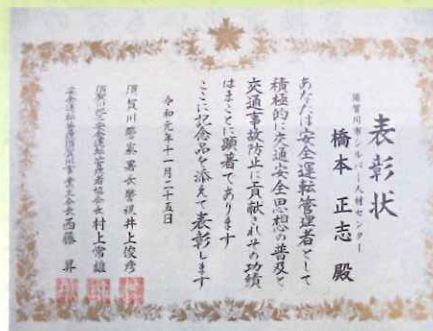 表彰状
須賀川市シルバー人材センター
橋本正志殿
あなたは安全運転管理者として
積極的に交通安全思想の普及と
交通事故防止に貢献されその功績
はまことに顕著であります
ここに記念品を添えて表彰します
令和元年十一月二十五日
須賀川警察署長警視井上俊彦
須賀川地区安全運転管理者協会長村上常雄
安全運転管理須賀川事業主会長西藤昇